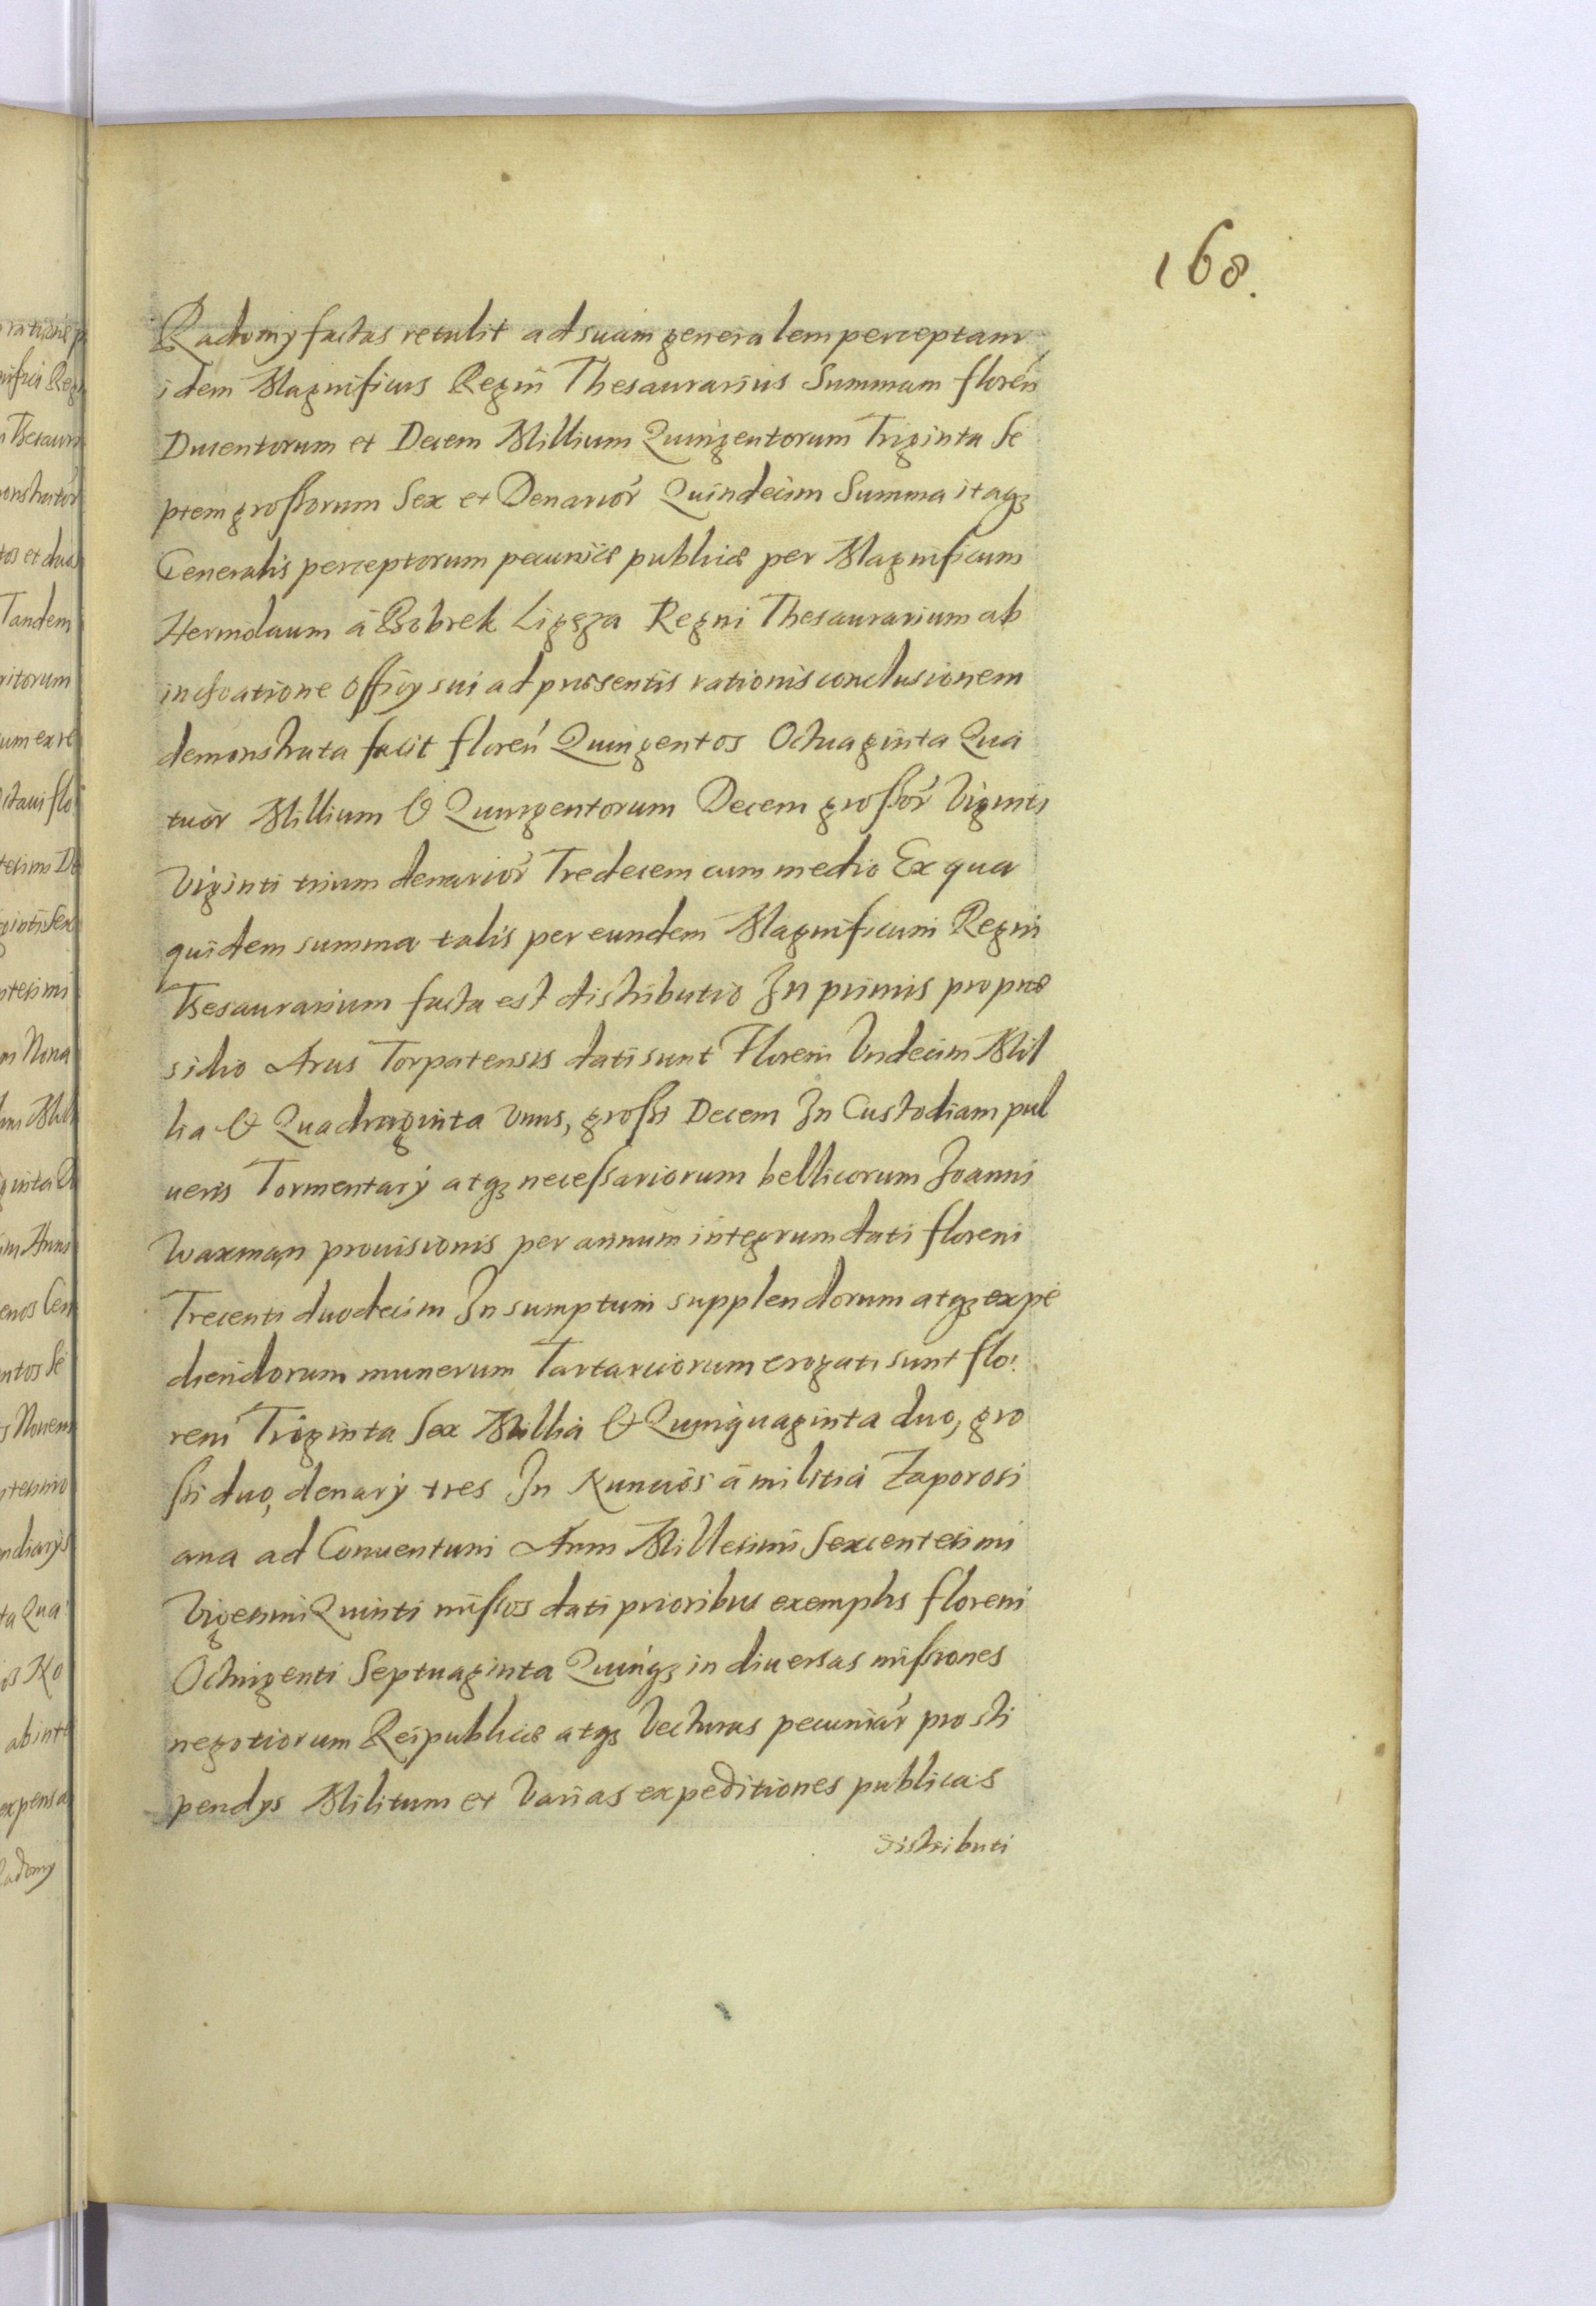 168.
Radomÿ factas retulit ad suam generalem perceptam
idem Magnificus Regni Thesaurarius Summam floren
Ducentorum et Decem Millium Quingentorum Triginta Se
ptem grossorum Sex et Denarior Quindecim Summa itaqȝ
Generalis perceptorum pecuniæ publicæ per Magnificum
Hermolaum à Bobrek Ligęza Regni Thesaurarium ab
inchoatione officÿ sui ad præsentis rationis conclusionem
demonstrata facit floren Quingentos Octuaginta Qua
tuor Millium & Quingentorum Decem grossor Viginti
Viginti trium denarior Tredecem cum medio Ex qua
quidem summa talis per eundem Magnificum Regni
Thesaurarium facta est distributio In primis pro præ
sidio Arcis Torpatensis dati sunt Floreni Vndecim Mil
lia & Quadraginta Vnus, grossi Decem In Custodiam pul
ueris Tormentarÿ atqȝ necessariorum bellicorum Joanni
Waxman prouisionis per annum integrum dati floreni
Trecenti duodecim In sumptum supplendorum atqȝ expe
diendorum munerum Tartaricorum erogati sunt flo
reni Triginta Sex Millia & Quinquaginta duo, gro
ssi duo, denarÿ tres In Nuncios à militia Zaporosi
ana ad Conuentum Anni Millesimi Sexcentesimi
Vigesimi Quinti missos dati prioribus exemplis floreni
Octingenti Septuaginta Quinqȝ in diuersas missiones
negotiorum Reipublicæ atqȝ Vecturas pecuniar pro sti
pendÿs Militum et Varias expeditiones publicas
distributi